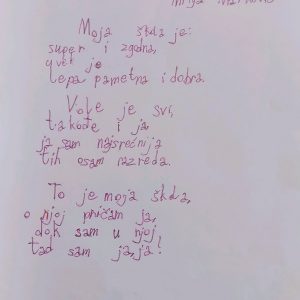 Moja škola je:
super i zgodna,
uvek je
lepa pametna i dobra.
Vole je svi,
takođe i ja
ja sam najsrećnija
tih osam razreda.
To je moja škola,
o njoj pričam ja,
dok sam u njoj
tad sam ja, ja!